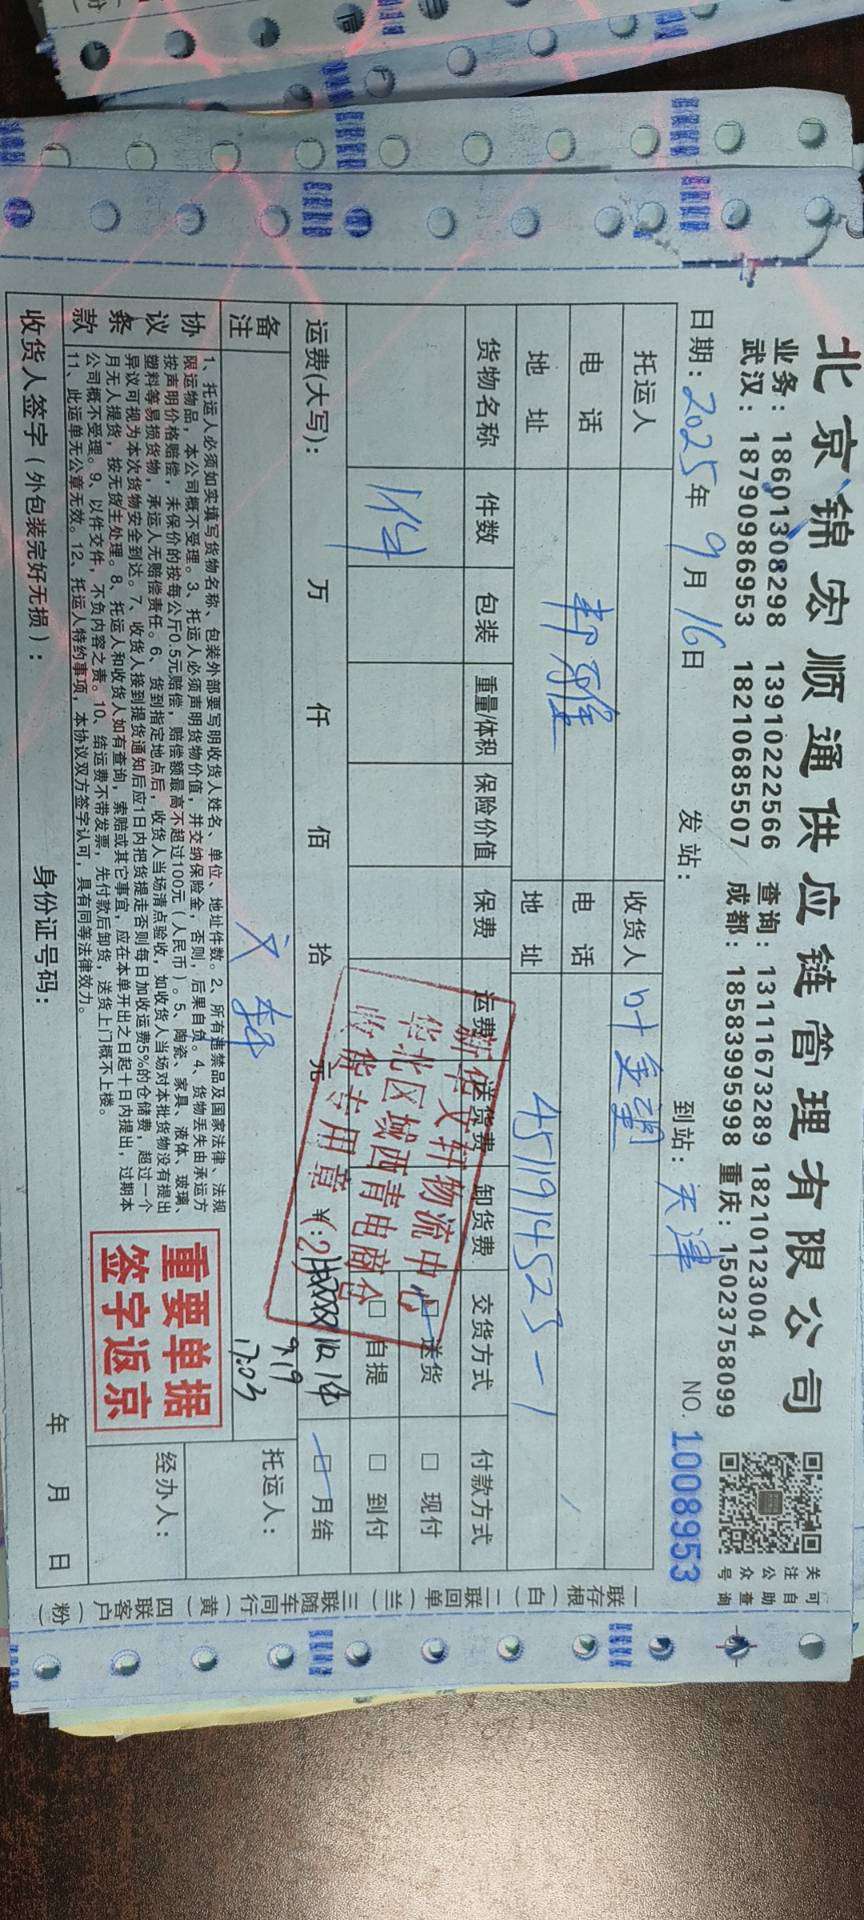 北京锦宏顺通供应链管理有限公司
业务：18601308298 13910222566 查询：13111673289 18210123004
武汉：18790986953 18210685507 成都：18583995998 重庆：15023758099
可自助查询
关注公众号
日期：2025年9月16日 发站： 到站：天津 NO.1008953
托运人 收货人 叶金望
电话 电话
地址 地址 4511914523-1
货物名称 件数 包装 重量/体积 保险价值 保费 运费 送货费 卸货费 交货方式 付款方式
1件 送货 □现付
□自提 □到付
运费(大写)： 万 仟 佰 拾 元 ¥: 月结
新华文轩物流中心
华北区域西青电商仓
收货专用章
(2)
备注 文轩 9.19
17:03
托运人：
经办人：
协议条款
1、托运人必须如实填写货物名称、包装外部要写明收货人姓名、单位、地址件数。2、所有违禁品及国家法律、法规
限运物品，本公司概不受理。3、托运人必须声明货物价值，并交纳保险金，否则，后果自负。4、货物丢失由承运方
按声明价格赔偿，未保价的按每公斤0.5元赔偿，赔偿额最高不超过100元（人民币）。5、陶瓷、家具、液体、玻璃、
塑料等易损货物，承运人无赔偿责任。6、货到指定地点后，收货人当场清点验收，如收货人当场对本批货物没有提出
异议可视为本次货物安全到达。7、收货人接到提货通知后应1日内把货提走否则每日加收运费5%的仓储费，超过一个
月无人提货，按无货主处理。8、托运人和收货人如有查询，索赔或其它事宜，应在本单开出之日起十日内提出，过期本
公司概不受理。9、以件交件，不负内容之责。10、结运费不带发票，先付款后卸货，送货上门概不上楼。
11、此运单无公章无效。12、托运人特约事项，本协议双方签字认可，具有同等法律效力。
重要单据
签字返京
收货人签字（外包装完好无损）： 身份证号码： 年 月 日
一联存根（白）二联回单（兰）三联随车同行（黄）四联客户（粉）